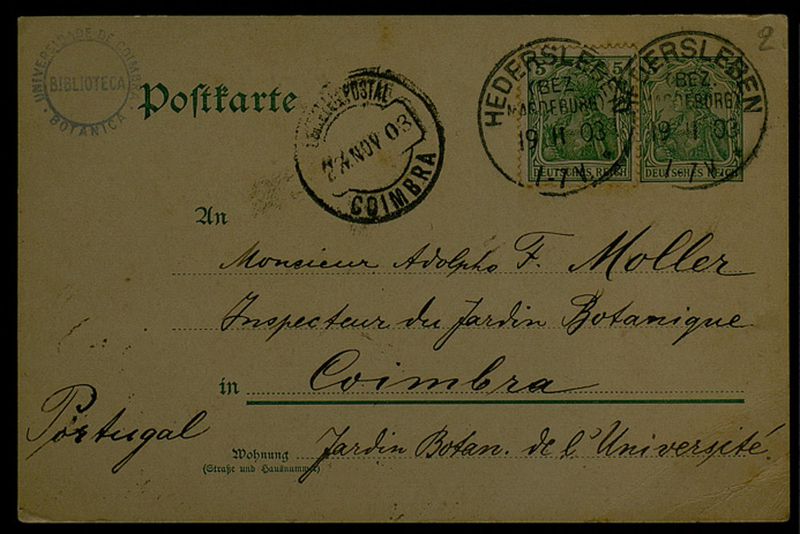 UNIVERSIDADE DE COIMBRA
BIBLIOTECA
BOTANICA
2
Postkarte
POSTAL
24 NOV 03
COIMBRA
HEDERSLEBEN
(BEZ. MAGDEBURG)
19 11 03
7-8 V.
5 5
DEUTSCHES REICH
HEDERSLEBEN
(BEZ. MAGDEBURG)
19 11 03
DEUTSCHES REICH
An
Monsieur Adolpho F. Moller
Inspecteur du Jardin Botanique
in Coimbra
Portugal
Wohnung Jardin Botan. de l'Université.
(Straße und Hausnummer)